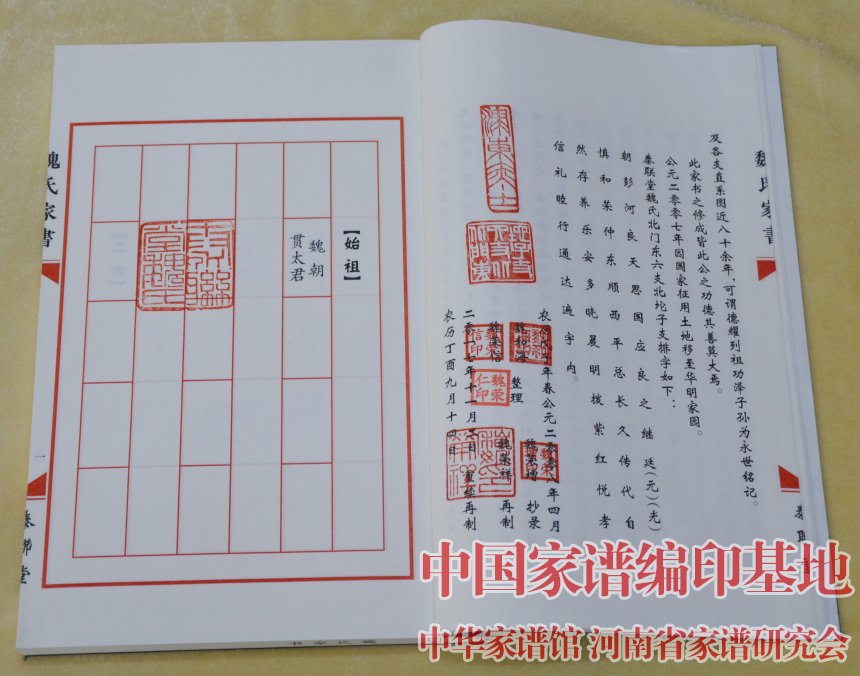 魏氏家書
及各支直系图近八十余年,可谓德耀列祖功泽子孙为永世铭记。
此家书之修成皆此公之功德其善莫大焉。
公元二〇〇七年因国家征用土地移至华明家园。
泰联堂魏氏北门东六支北坨子支排字如下:
朝彭河良天思国应良之继廷(元)(光)
慎和荣仲东顺西平总长久传代自
然存养乐安多晓晨明拨紫红悦孝
信礼睦行通达遍宇内。
年春公元二〇〇八年四月
整理 魏荣增 抄录
魏荣信 魏荣祥 再制
二〇一七年十一月 日 重经再制
农历丁酉九月十四日
魏荣仁印
【始祖】
魏朝
贯太君
魏氏家書
一
泰聯堂
魏氏家书
中国家谱编印基地
中华家谱馆 河南省家谱研究会